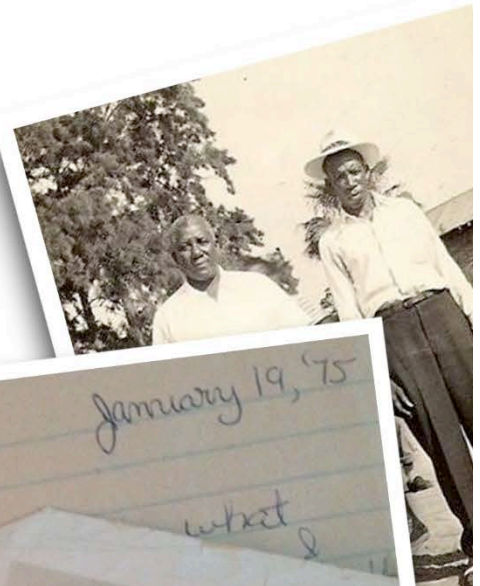 January 19, '75
what
&